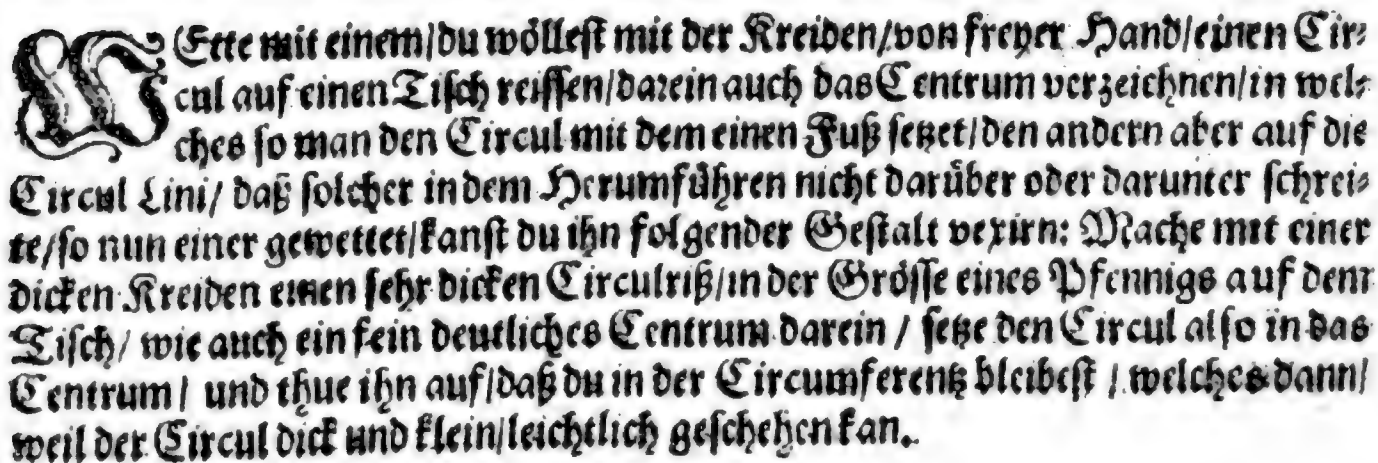 WEtte mit einem/du wöllest mit der Kreiden/von freyer Hand/einen Cir-
cul auf einen Tisch reissen/darein auch das Centrum verzeichnen/in wel-
ches so man den Circul mit dem einen Fuß setzet/den andern aber auf die
Circul Lini/ daß solcher in dem Herumführen nicht darüber oder darunter schrei-
te/so nun einer gewettet/kanst du ihn folgender Gestalt vexirn: Mache mit einer
dicken Kreiden einen sehr dicken Circulriß/in der Grösse eines Pfennigs auf dem
Tisch/ wie auch ein fein deutliches Centrum darein / setze den Circul also in das
Centrum/ und thue ihn auf/daß du in der Circumferentz bleibest / welches dann/
weil der Circul dick und klein/leichtlich geschehen kan.